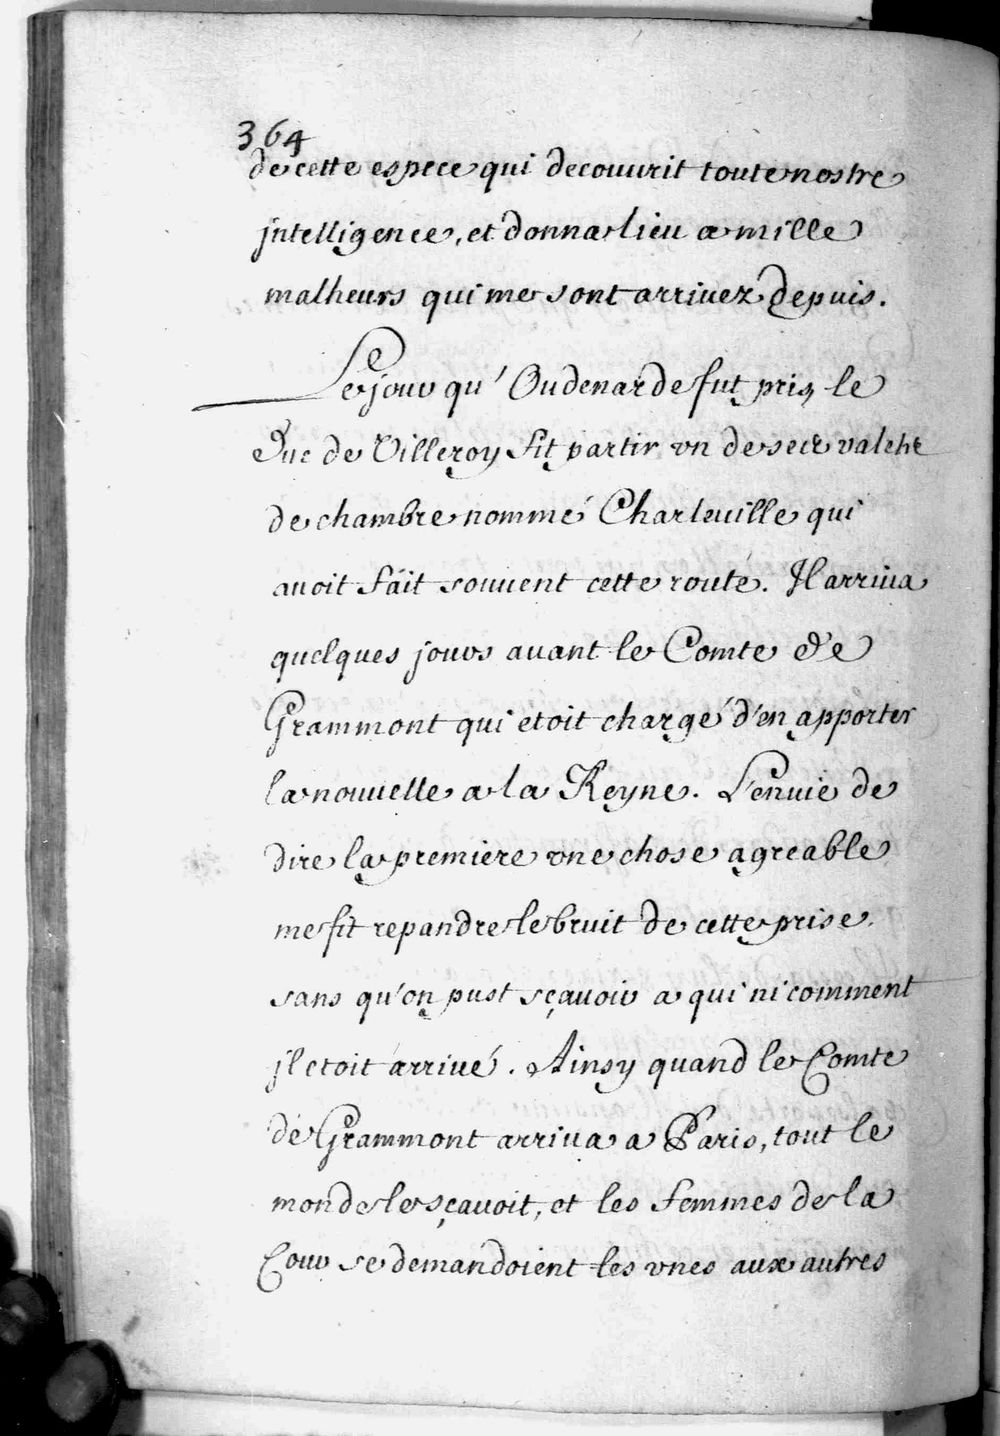 364
de cette espece qui decouurit toute nostre
jntelligence, et donna lieu a mille
malheurs qui me sont arriuez depuis.
Le jour qu'Oudenarde fut pris, le
Duc de Villeroy fit partir vn de ses valets
de chambre nommé Charleuille qui
auoit fait souuent cette route. Il arriua
quelques jours auant le Comte de
Grammont qui etoit chargé d'en apporter
la nouuelle a la Reyne. L'enuie de
dire la premiere vne chose agreable
me fit repandre le bruit de cette prise.
sans qu'on pust sçauoir a qui ni comment
jl etoit arriué. Ainsy quand le Comte
de Grammont arriua a Paris, tout le
monde le sçauoit, et les femmes de la
Cour se demandoient les vnes aux autres